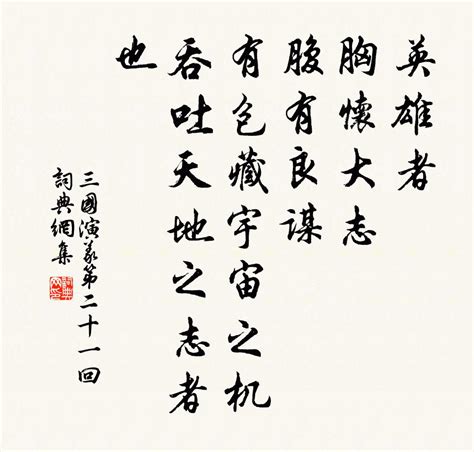 英雄者
胸懷大志
腹有良謀
有包藏宇宙之机
吞吐天地之志者
也
三國演义第二十一回
詞典網集